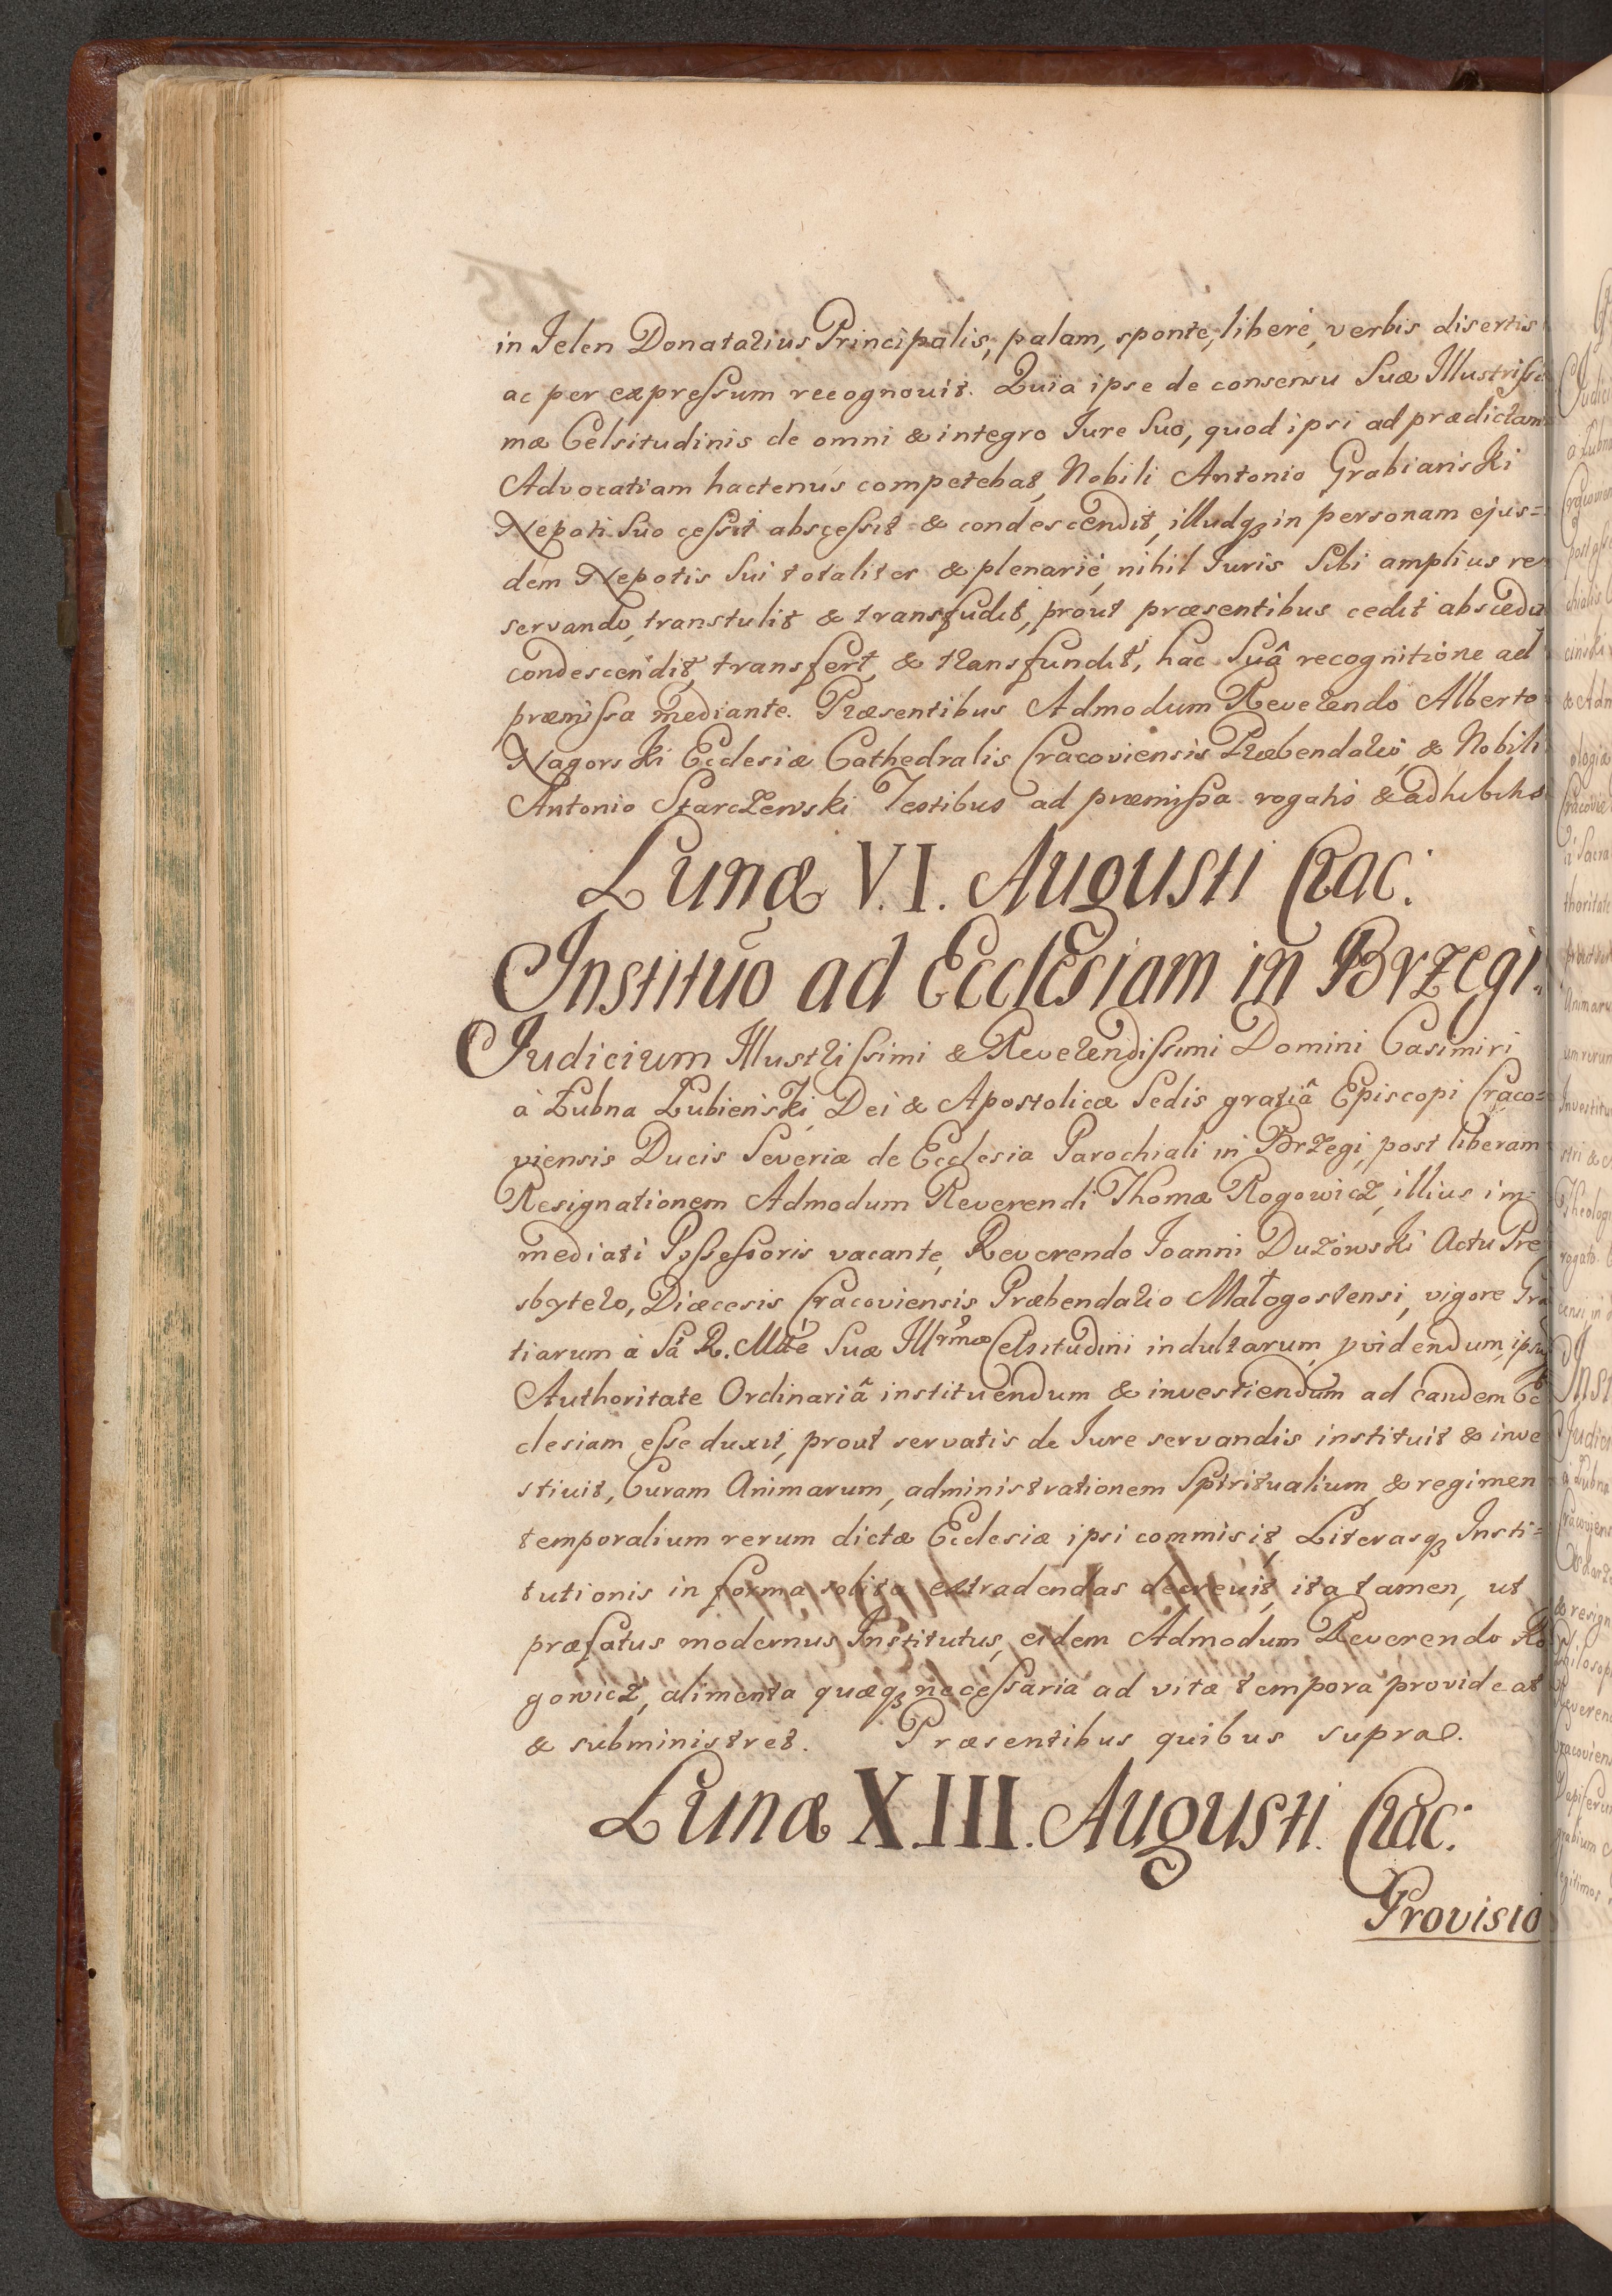 in Jelen Donatarius Principalis, palam, sponte, liberé, verbis disertis
ac per expressum recognouit. Quia ipse de consensu Suæ Illustrissi
mæ Celsitudinis de omni & integro Jure Suo, quod ipsi ad prædictam
Advocatiam hactenus competebat, Nobili Antonio Grabianski
Nepoti Suo cessit abscessit & condescendit, illudq3 in personam ejus=
dem Nepotis Sui totaliter & plenarié, nihil Juris Sibi amplius re
servando, transtulit & transfudit, prout præsentibus cedit abscedit
condescendit, transfert, & transfundit, hac Suâ recognitione ad
præmissa mediante. Præsentibus Admodum Reverendo Alberto
Nagorski Ecclesiæ Cathedralis Cracoviensis Præbendario, & Nobili
Antonio Starczewski Testibus ad præmissa rogatis & adhibitis
Lunæ V.I. Augusti Crac:
Institutio ad Ecclesiam in Brzegi.
Judicium Illustrissimi & Reverendissimi Domini Casimiri
à Łubna Łubieński, Dei & Apostolicæ Sedis gratiâ Episcopi Craco=
viensis Ducis Severiæ de Ecclesia Parochiali in Brzegi, post liberam
Resignationem Admodum Reverendi Thomæ Rogowicz, illius im=
mediati Possessoris vacante, Reverendo Joanni Dużowski Actu Pre
sbytero, Diæcesis Cracoviensis Præbendario Małogostensi, vigore Gra
tiarum à Sâ R. Mtte Suæ Illrmæ Celsitudini indultarum, pvidendum, ipsu
Authoritate Ordinariâ instituendum & investiendum ad eandem Ec
clesiam esse duxit, prout servatis de Jure servandis instituit & inve
stiuit, Curam Animarum, administrationem Spiritualium, & regimen
temporalium rerum dictæ Ecclesiæ ipsi commisit, Literasq3 Insti=
tutionis in forma solita extradendas decreuit, ita tamen, ut
præfatus modernus Institutus, eidem Admodum Reverendo Ro
gowicz, alimenta quæq3 necessaria ad vitæ tempora provideat
& subministret. Præsentibus quibus supra.
Lunæ X.III. Augusti. Crac:
Provisio